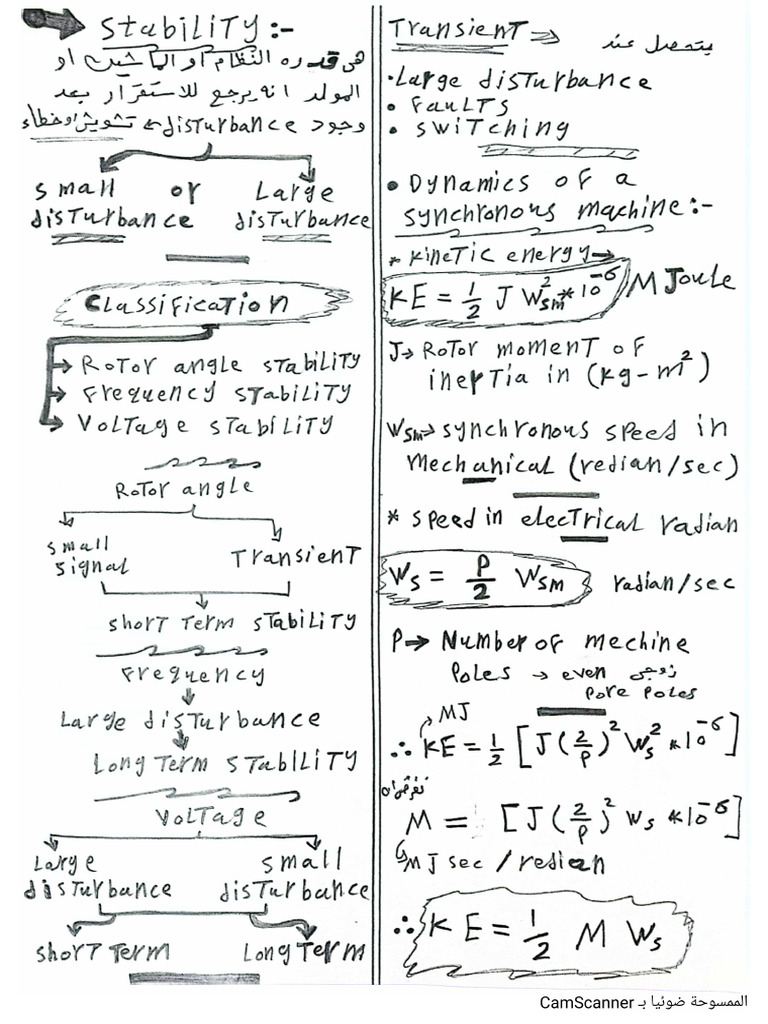 Stability :-
هى قدره النظام او الماشين او
المولد انه يرجع للاستقرار بعد
وجود disturbance ← تشويش او خطاء
small or Large
disturbance disturbance
Classification
→ Rotor angle stability
→ Frequency stability
→ Voltage stability
Rotor angle
small signal
Transient
short Term stability
Frequency
Large disturbance
Long Term stability
Voltage
Large disturbance
small disturbance
short Term
Long Term
Transient ⇒ يتحصل عند
• Large disturbance
• Faults
• switching
• Dynamics of a
synchronous machine :-
* kinetic energy →
KE = 1/2 J W²sm * 10⁻⁶ M Joule
J → Rotor moment of
inertia in (kg-m²)
Wsm → synchronous speed in
mechanical (redian/sec)
* speed in electrical radian
Ws = P/2 Wsm radian/sec
P → Number of mechine
Poles → even زوجى
Pore Poles
MJ
∴ KE = 1/2 [J (2/P)² Ws² * 10⁻⁶]
نفرض ان
M = [J (2/P)² Ws * 10⁻⁶]
MJ sec / redian
∴ KE = 1/2 M Ws
الممسوحة ضوئيا بـ CamScanner